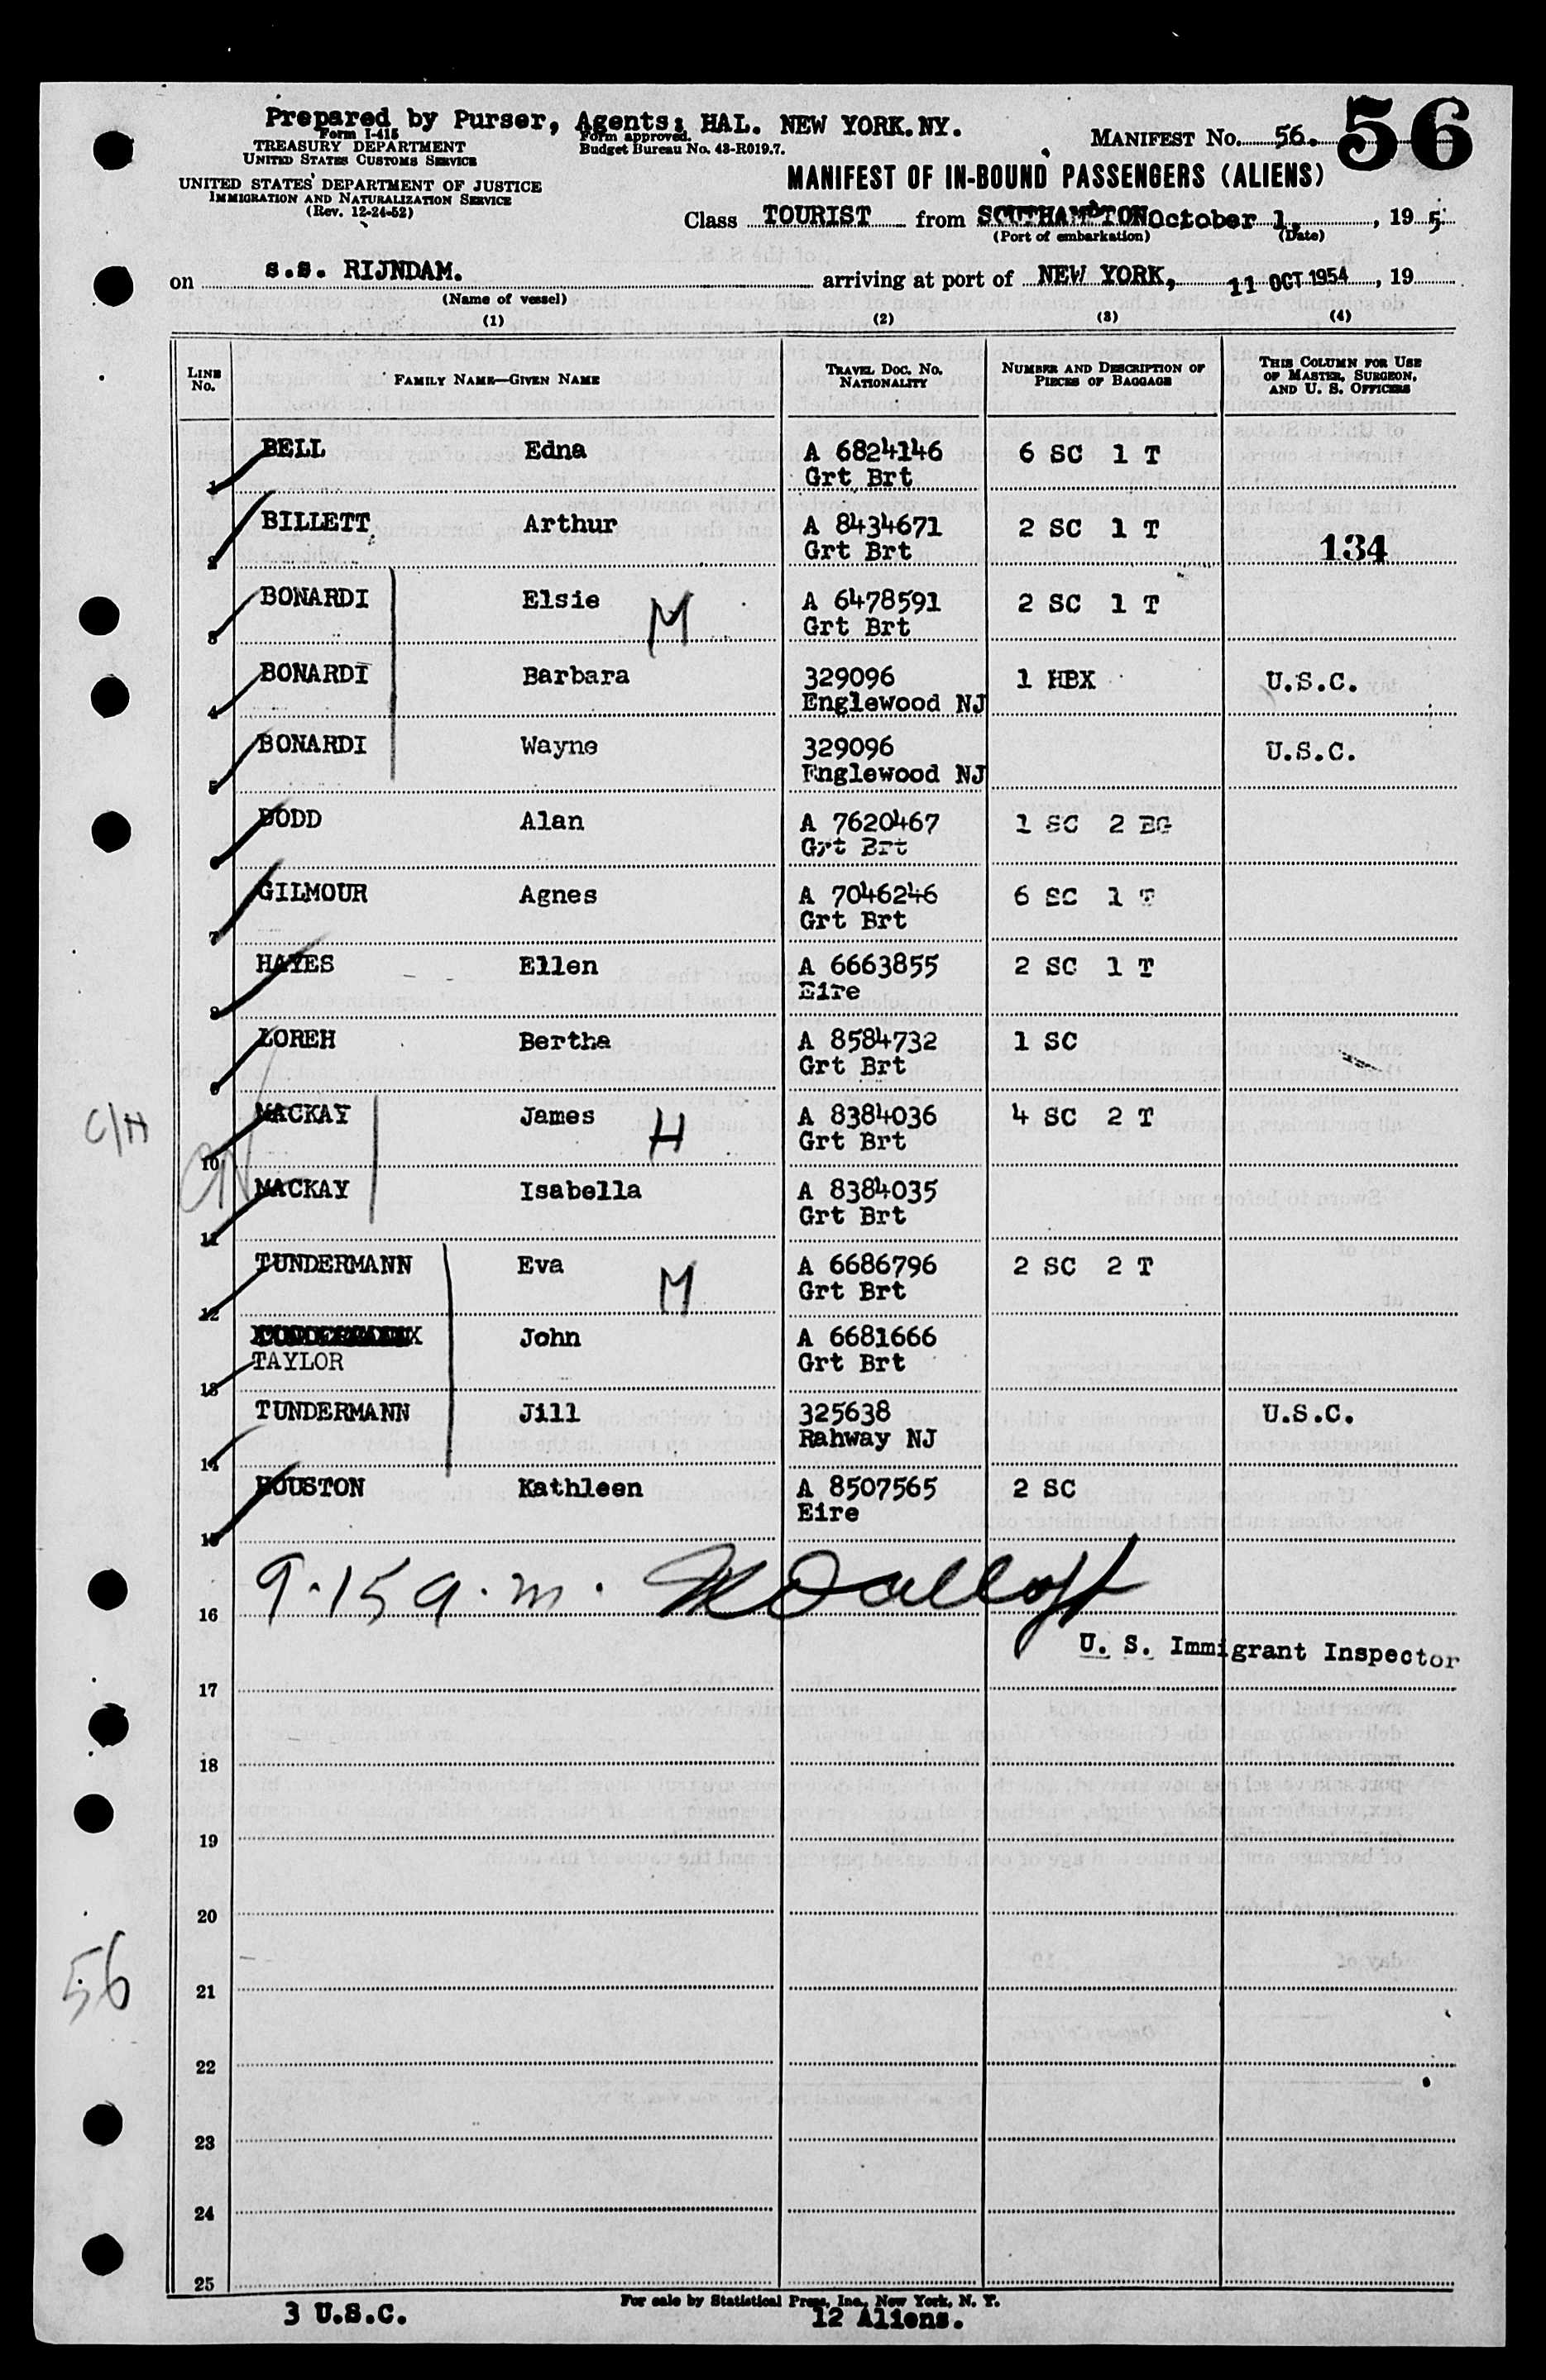 Prepared by Purser, Agents; HAL. NEW YORK.NY.
Form I-415
TREASURY DEPARTMENT
UNITED STATES CUSTOMS SERVICE
UNITED STATES DEPARTMENT OF JUSTICE
IMMIGRATION AND NATURALIZATION SERVICE
(Rev. 12-24-52)
Form approved.
Budget Bureau No. 43-R019.7.
MANIFEST No. 56. 56
MANIFEST OF IN-BOUND PASSENGERS (ALIENS)
Class TOURIST from SOUTHAMPTON October 1, , 19 5
(Port of embarkation) (Date)
on s.s. RIJNDAM. arriving at port of NEW YORK, 11 OCT 1954, 19
(Name of vessel)
(1) (2) (3) (4)
LINE No. FAMILY NAME—GIVEN NAME TRAVEL DOC. NO. NATIONALITY NUMBER AND DESCRIPTION OF PIECES OF BAGGAGE THIS COLUMN FOR USE OF MASTER, SURGEON, AND U. S. OFFICERS
BELL Edna A 6824146 6 SC 1 T
1 Grt Brt
BILLETT Arthur A 8434671 2 SC 1 T
2 Grt Brt 134
BONARDI Elsie M A 6478591 2 SC 1 T
3 Grt Brt
BONARDI Barbara 329096 1 HBX U.S.C.
4 Englewood NJ
BONARDI Wayne 329096 U.S.C.
5 Englewood NJ
DODD Alan A 7620467 1 SC 2 BG
6 Grt Brt
GILMOUR Agnes A 7046246 6 SC 1 T
7 Grt Brt
HAYES Ellen A 6663855 2 SC 1 T
8 Eire
LOREH Bertha A 8584732 1 SC
9 Grt Brt
C/H
MACKAY James H A 8384036 4 SC 2 T
10 Grt Brt
MACKAY Isabella A 8384035
11 Grt Brt
TUNDERMANN Eva M A 6686796 2 SC 2 T
12 Grt Brt
John A 6681666
13 TAYLOR Grt Brt
TUNDERMANN Jill 325638 U.S.C.
14 Rahway NJ
HOUSTON Kathleen A 8507565 2 SC
15 Eire
16 9.15 a.m.
U. S. Immigrant Inspector
17
18
19
20
56
21
22
23
24
25
For sale by Statistical Press, Inc., New York, N. Y.
3 U.S.C. 12 Aliens.